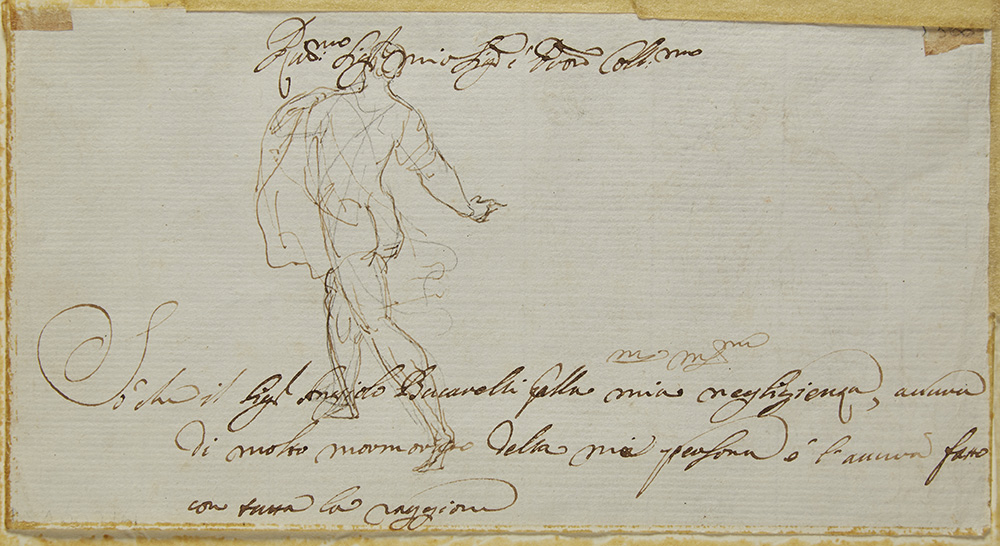 Rev.mo Sig.r mio Sig.r e Pron Coll.mo
mo m mu
Sò che il Sig.r Angiolo Bucarelli della mia negligienza, avera
di molto mormorare della mia persona e l'avera fatto
con tutta la raggione